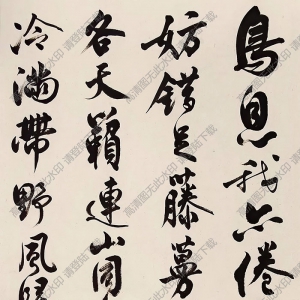 鳥息我亦倦
妨錯足藤蔓
各天籟連山同
冷滿帶野風